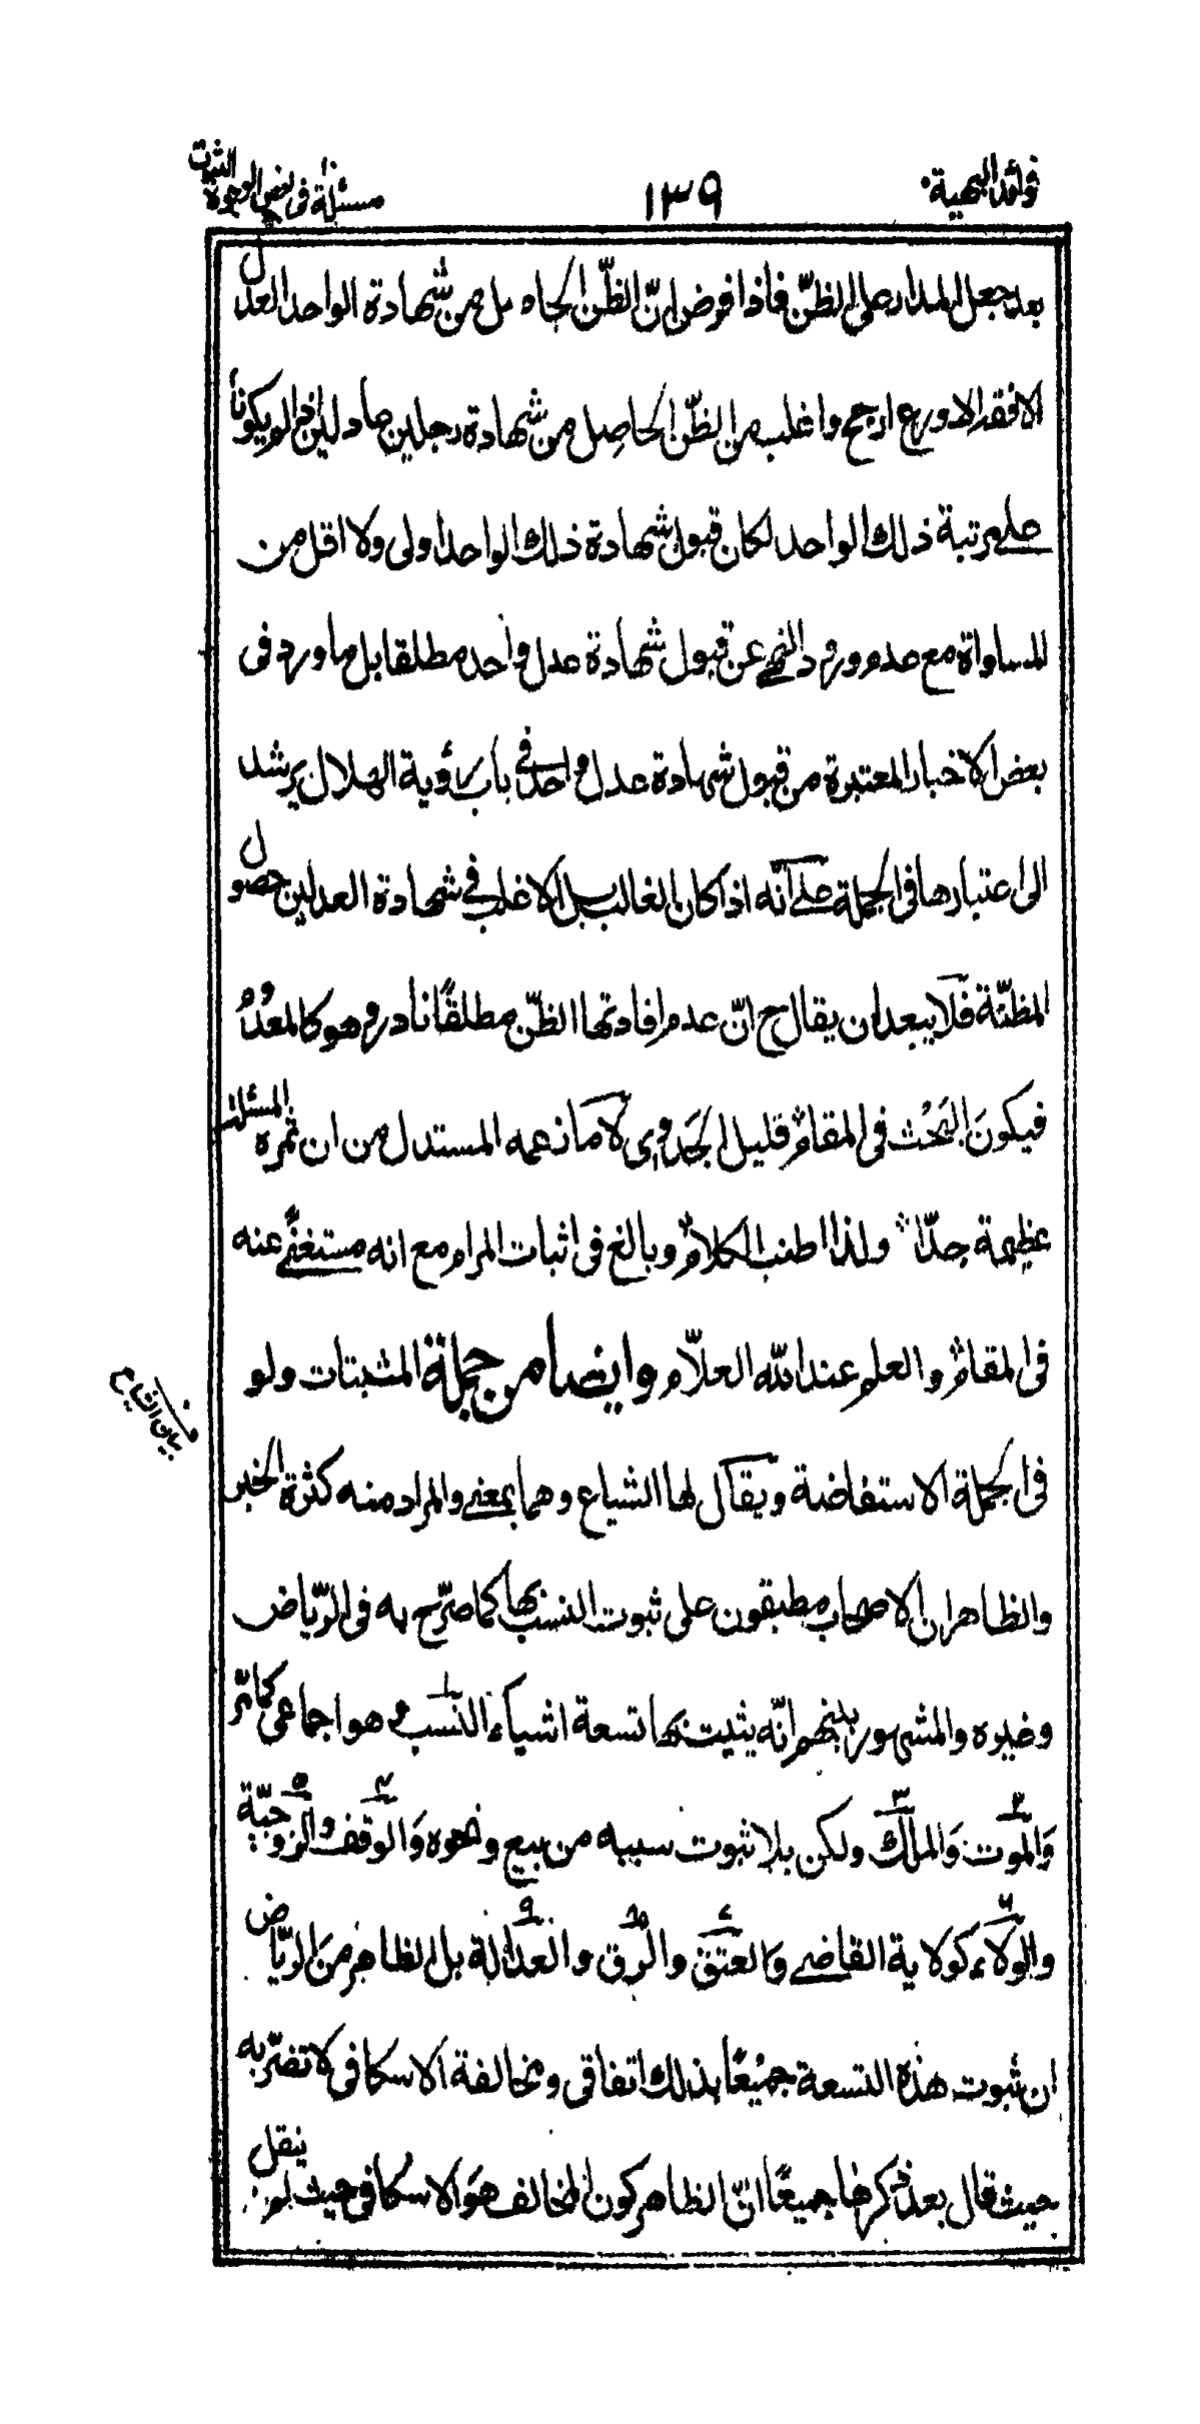 فوائد البهية
١٣٩
مسئلة فی بعض الوجوه المثبتة
بعد جعل المدار علی الظنّ فاذا فرض انّ الظنّ الجاءی من شهادة الواحد العدل
الافقه الاورع ارجح واغلب من الظنّ الحاصل من شهادة رجلین عادلین لم یکونا
علی مرتبة ذلك الواحد لکان قبول شهادة ذلك الواحد اولی ولا اقل من
المساواة مع عدم ورود النهی عن قبول شهادة عدل واحد مطلقا بل ما ورد فی
بعض الاخبار المعتبرة من قبول شهادة عدل واحد فی باب رؤیة الهلال یرشد
الی اعتبارها فی الجملة علی انّه اذا کان الغالب بل الاغلب فی شهادة العدلین حصول
المظنّة فلا یبعد ان یقال ح انّ عدم افادتها الظنّ مطلقًا نادر وهو کالمعدوم
فیکونَ البَحْث فی المقام قلیل الجَدوی لا ما زعمه المستدل من ان ثمرة المسئلة
عظیمة جدّا ولذا اطنب الکلام وبالغ فی اثبات المرام مع انه مستغنًی عنه
فی المقام والعلم عند الله العلّام وایضا من جملة المثبتات ولو
فی الجملة الاستفاضة ویقال لها الشیاع وهما بمعنی والمراد منه کثرة الخبر
بیان الشیاع
والظاهر ان الاصحاب مطبقون علی ثبوت النسب بها کما صرّح به فی الریّاض
وغیره والمشهور بینهم انّه یثبت بها تسعة اشیاء النّسب ١ وهو اجماعی کما مرّ
وَالموت ٢ وَالملك ٣ ولکن بلا ثبوت سببه من بیع ونحوه وَالوقف ٤ والزوجیّة ٥
والولاء ٦ کولایة القاضی وَالعتق ٧ والرّق ٨ والعدالة ٩ بل الظاهر منَ الریّاض
ان ثبوت هذه التسعة جمیْعًا بذلك اتفاقی ومخالفة الاسکافی لا تضرّ به
حیث قال بعد ذکرها جمیعًا انّ الظاهر کون المخالف هوَ الاسکافی حیث لم ینقل